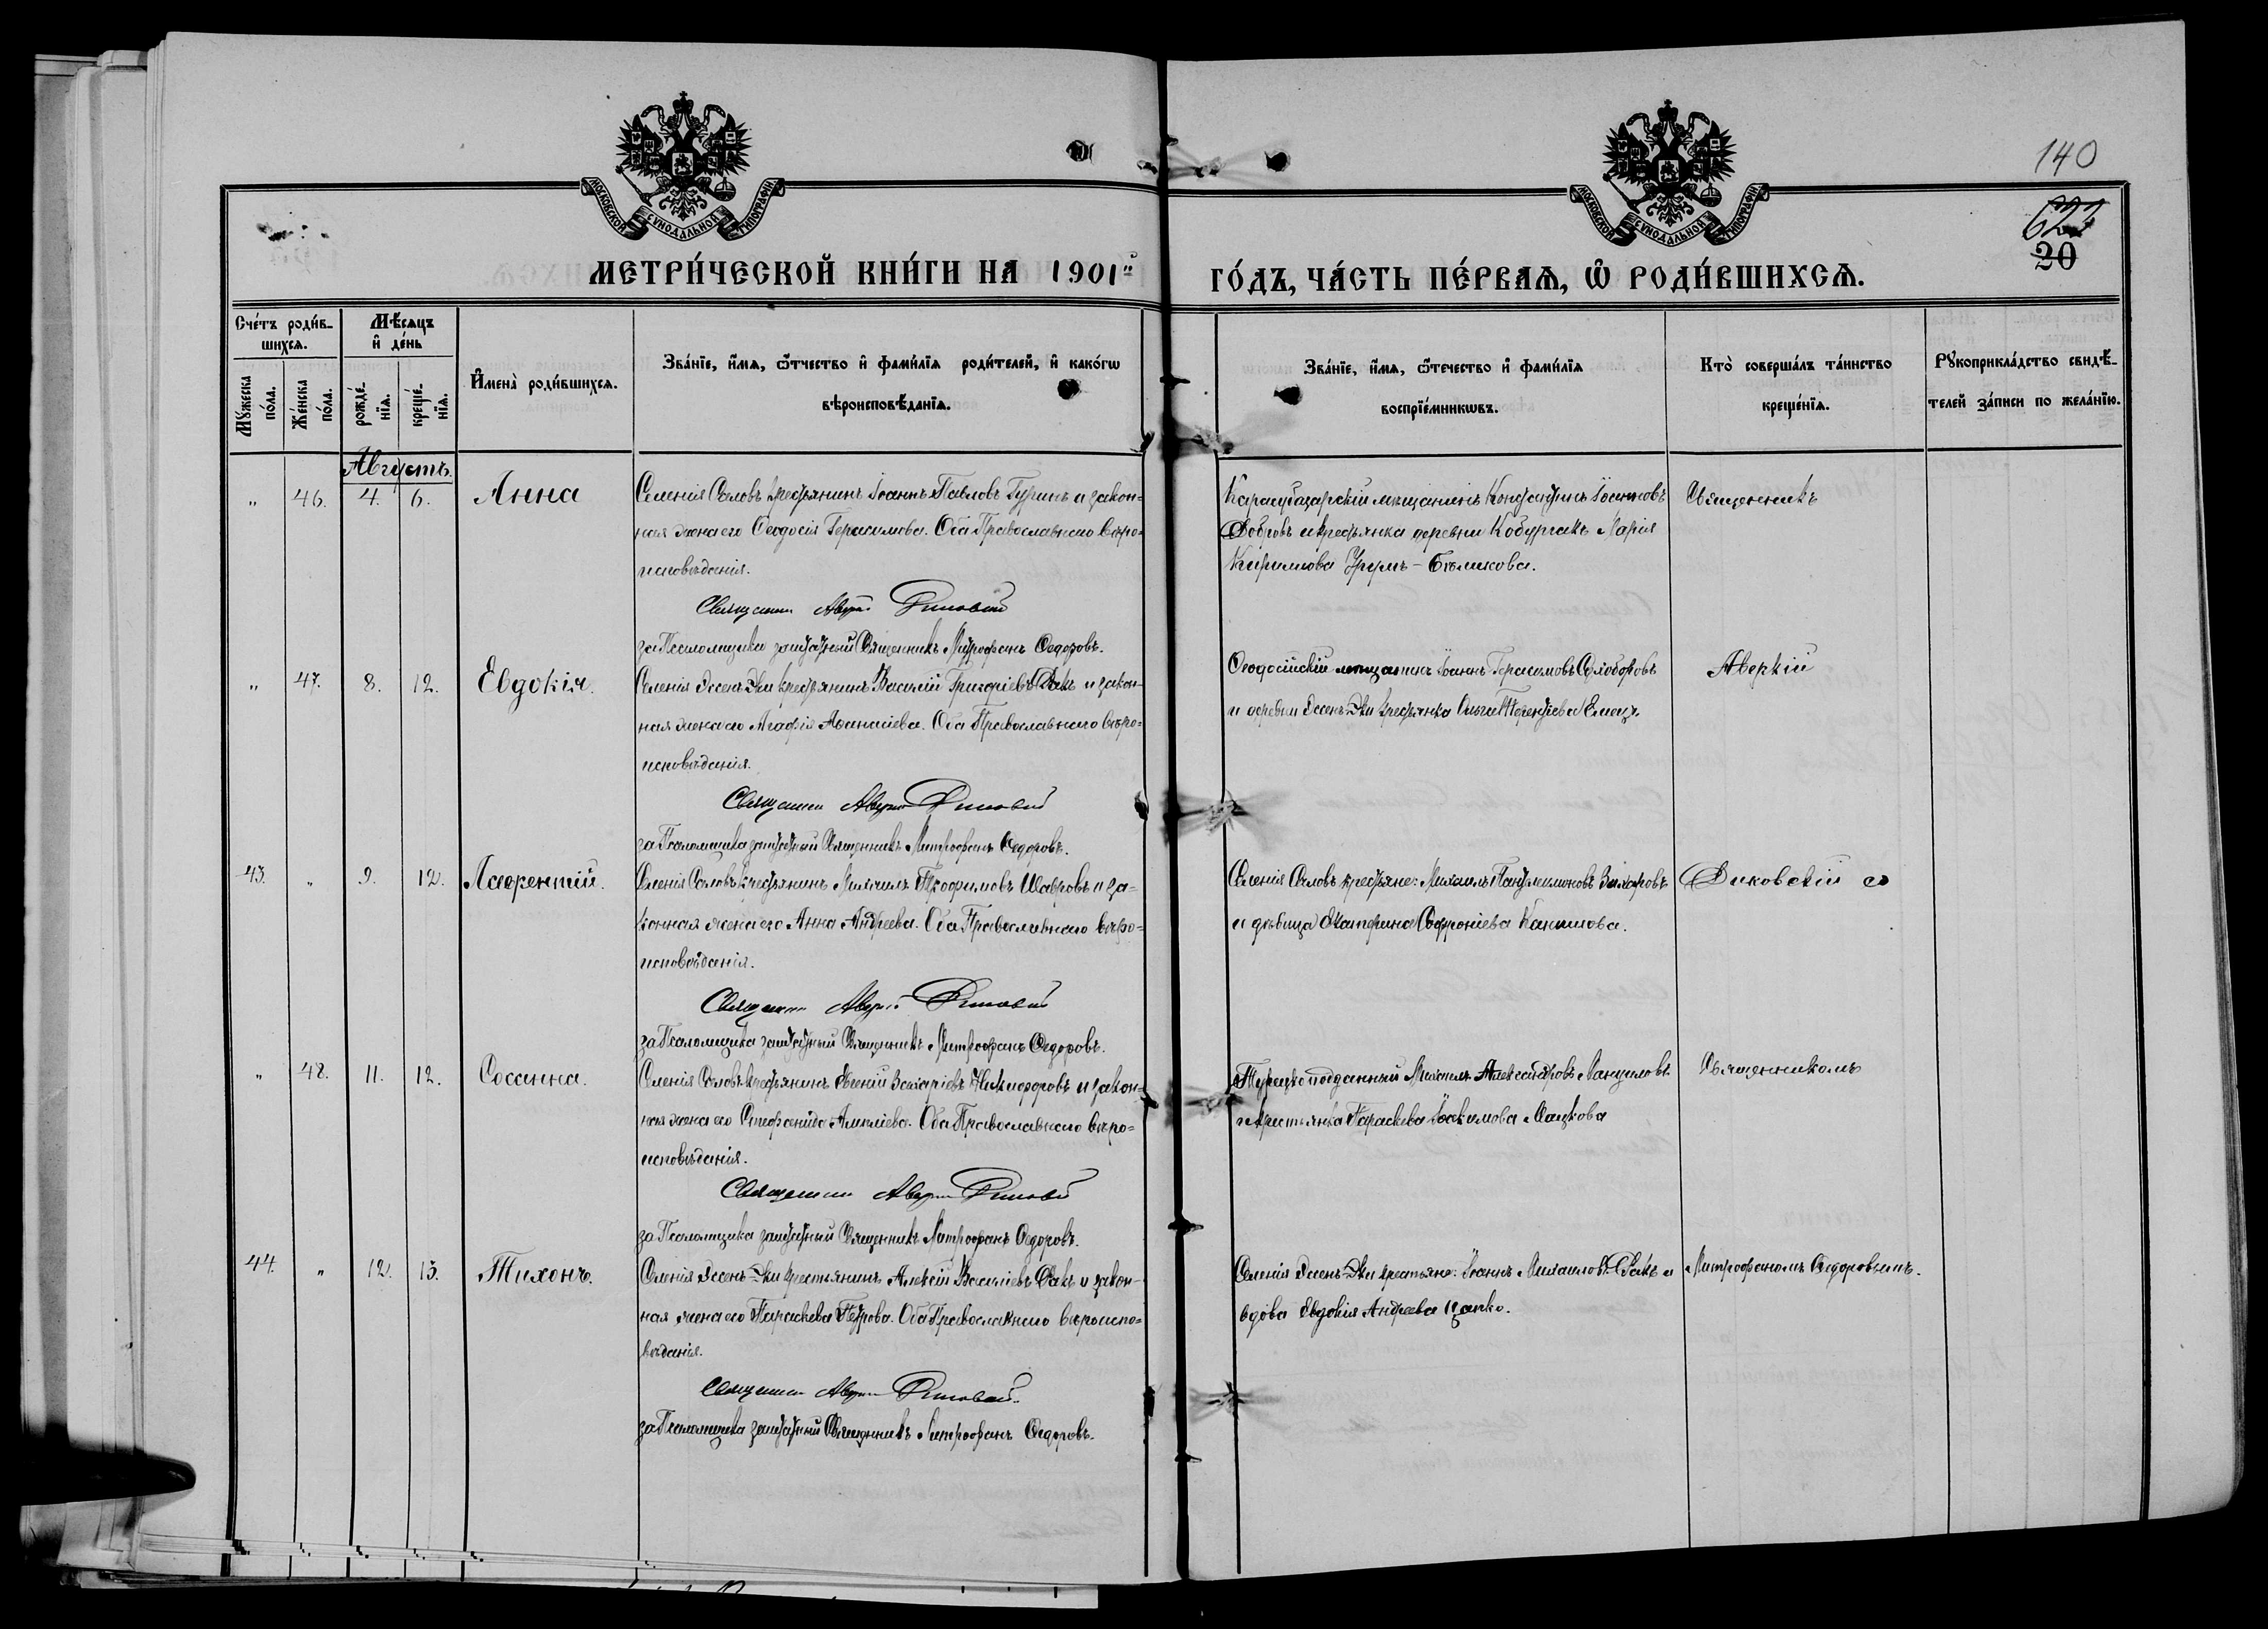 140
622
20
МОСКОВСКОЙ СѴНОДАЛЬНОЙ ТИПОГРАФІИ
МОСКОВСКОЙ СѴНОДАЛЬНОЙ ТИПОГРАФІИ
МЕТРИ́ЧЕСКОЙ КНИ́ГИ НА 1901й ГО́ДЪ, ЧА́СТЬ ПЕ́РВАѦ, Ѿ РОДИ́ВШИХСѦ.
Сче́тъ роди́в-
шихсѧ.
Мꙋ́жеска по́ла.
Же́нска по́ла.
Мѣ́сѧцъ
и҆ де́нь
рожде́-
нїѧ.
креще́-
нїѧ.
И҆мена̀ роди́вшихсѧ.
Зва́нїе, и҆́мѧ, ѻ҆́тчество и҆ фами́лїѧ роди́телей, и҆ како́гѡ
вѣроисповѣ́данїѧ.
Зва́нїе, и҆́мѧ, ѻ҆́течество и҆ фами́лїѧ
воспрїе́мникѡвъ.
Кто̀ соверша́лъ та́инство
креще́нїѧ.
Рꙋкоприкла́дство свидѣ́-
телей за́писи по жела́нїю.
Августъ.
" 46. 4. 6. Анна
Селенія Саловъ крестьянинъ Іоаннъ Павловъ Гуринъ и закон=
ная жена его Ѳеодосія Герасимова. Оба Православнаго вѣро=
исповѣданія.
Священникъ Аверкій Диковскій
за Псаломщика заштатный Священникъ Митрофанъ Ѳедоровъ.
Карасубазарскій мѣщанинъ Константинъ Іоанновъ
Бобровъ и крестьянка деревни Кобурчакъ Марія
Кириллова Урумъ-
Священникъ
" 47. 8. 12. Евдокія.
Селенія Эсенъ-Эки крестьянинъ Василій Григоріевъ Сакъ и закон-
ная жена его Агафія Аѳанасіева. Оба Православнаго вѣро=
исповѣданія.
Священникъ Аверкій Диковскій
за Псаломщика заштатный Священникъ Митрофанъ Ѳедоровъ.
Ѳеодосійскій мѣщанинъ Іоаннъ Герасимовъ
и деревни Эсенъ-Эки крестьянка Ольга Терентіева Емецъ.
Аверкій
43. " 9. 12. Лаврентій.
Селенія Саловъ крестьянинъ Михаилъ Трофимовъ Шавровъ и за-
конная жена его Анна Андреева. Оба Православнаго вѣро=
исповѣданія.
Священникъ Аверкій Диковскій
за Псаломщика заштатный Священникъ Митрофанъ Ѳедоровъ.
Селенія Саловъ крестьяне: Михаилъ Пантелимоновъ Захаровъ
и дѣвица Екатерина Софроніева
Диковскій съ
" 48. 11. 12. Сосанна.
Селенія Саловъ крестьянинъ Евгеній Захаріевъ Никифоровъ и закон-
ная жена его Стефанида Амиліева. Оба Православнаго вѣро=
исповѣданія.
Священникъ Аверкій Диковскій
за Псаломщика заштатный Священникъ Митрофанъ Ѳедоровъ.
Турецко подданный Михаилъ Александровъ
и крестьянка Параскева Іоакимова
Священникомъ
44. " 12. 13. Тихонъ.
Селенія Эсенъ-Эки крестьянинъ Алексій Василіевъ Сакъ и закон-
ная жена его Параскева Петрова. Оба Православнаго вѣроиспо=
вѣданія.
Священникъ Аверкій Диковскій
за Псаломщика заштатный Священникъ Митрофанъ Ѳедоровъ.
Селенія Эсенъ-Эки крестьяне: Іоаннъ Михаиловъ Сакъ и
вдова Евдокія Андреева Цапко.
Митрофаномъ Ѳедоровымъ.